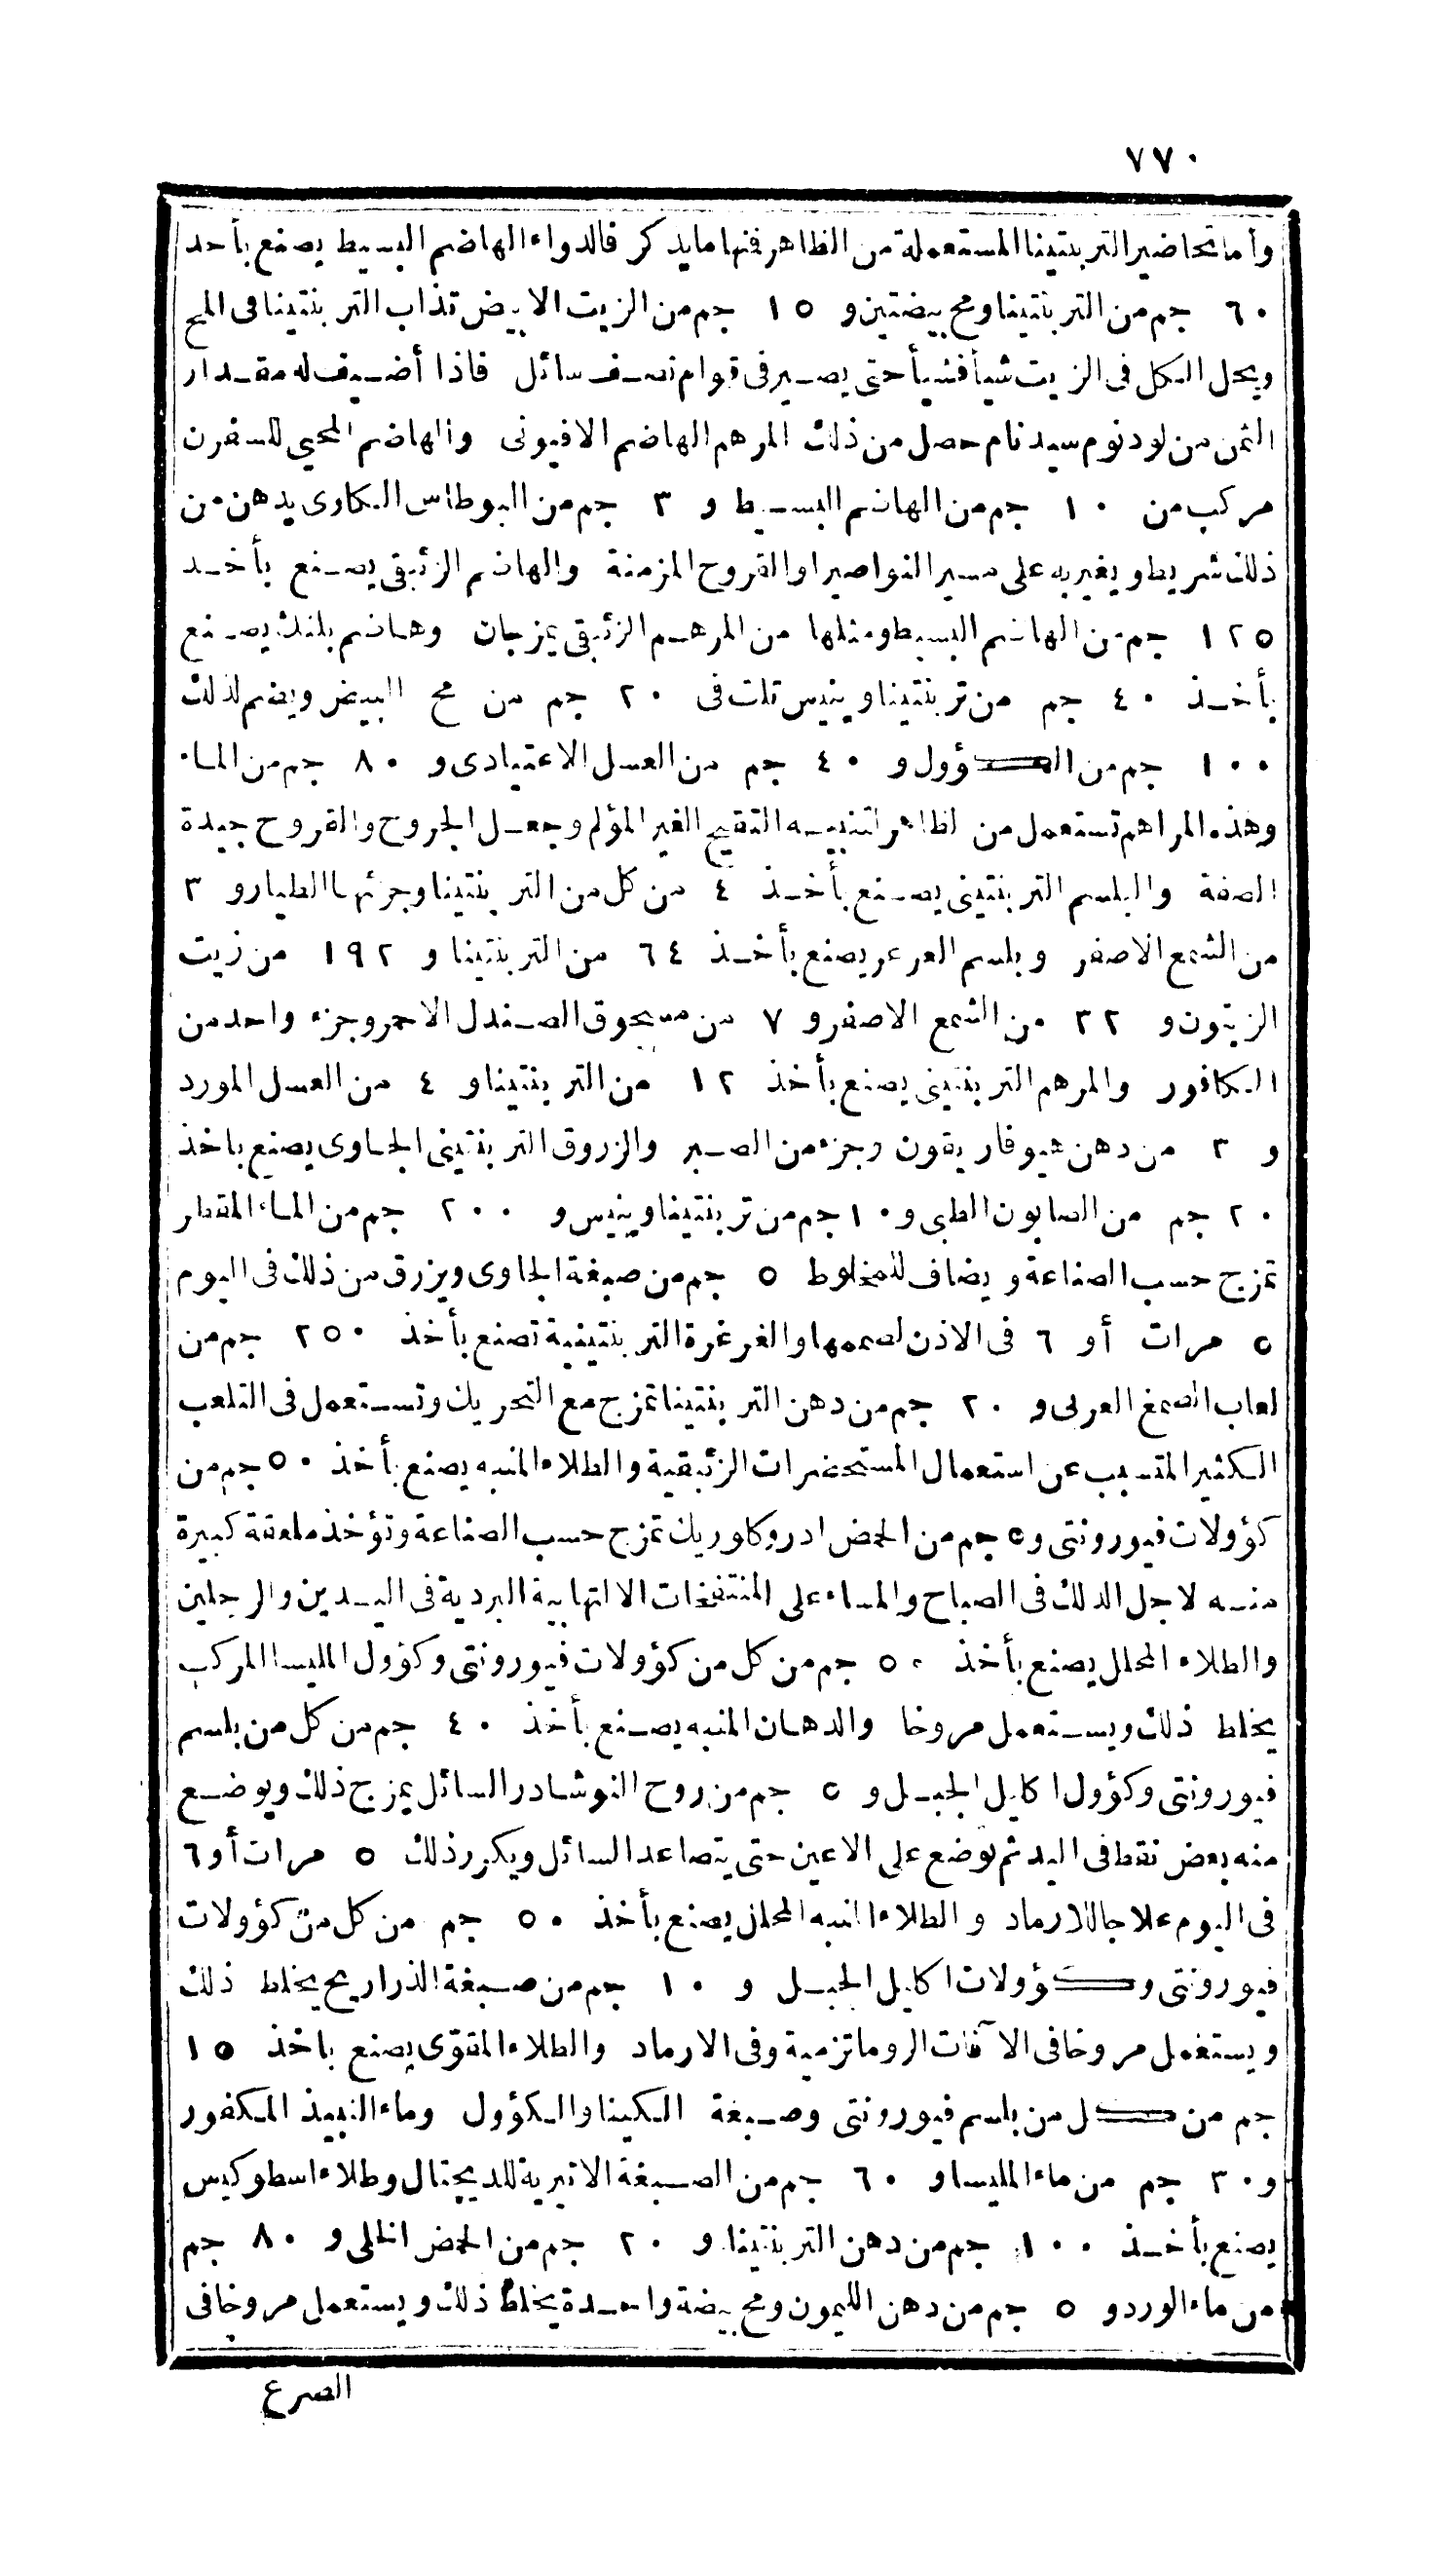 ٧٧٠
وأما تحاضير التربنتينا المستعملة من الظاهر فنها مايذكر فالدواء الهاضم البسيط يصنع بأحد
٦٠ جم من التربنتينا ومح بيضتين و ١٥ جم من الزيت الابيض تذاب التربنتينا فى المح
ويحل الكل فى الزيت شيأ فشيأ حتى يصير فى قوام نصف سائل فاذا أضيف له مقدار
الثمن من لودنوم سيدنام حصل من ذلك المرهم الهاضم الافيونى والهاضم المحيي للسفرن
مركب من ١٠ جم من الهاضم البسيط و ٣ جم من البوطاس الكاوى يدهن من
ذلك شريط ويغير به على مسير النواصير او القروح المزمنة والهاضم الزئبقى يصنع بأخذ
١٢٥ جم من الهاضم البسيط ومثلها من المرهم الزئبقى يمزجان وهاضم بلنك يصنع
بأخذ ٤٠ جم من تربنتينا وينيس تلت فى ٢٠ جم من مح البيض ويضم لذلك
١٠٠ جم من الكؤول و ٤٠ جم من العسل الاعتيادى و ٨٠ جم من الماء
وهذه المراهم تستعمل من الظاهر لتنبيه التقيح الغير المؤلم وجعل الجروح والقروح جيدة
الصفة والبلسم التربنتينى يصنع بأخذ ٤ من كل من التربنتينا وجزئها الطيار و ٣
من الشمع الاصفر وبلسم العرعر يصنع بأخذ ٦٤ من التربنتينا و ١٩٢ من زيت
الزيتون و ٣٢ من الشمع الاصفر و ٧ من مسحوق الصندل الاحمر وجزء واحد من
الكافور والمرهم التربنتينى يصنع بأخذ ١٢ من التربنتينا و ٤ من العسل المورد
و ٣ من دهن هيوفاريقون وجزء من الصبر والزروق التربنتينى الجاوى يصنع باخذ
٢٠ جم من الصابون الطبى و ١٠ جم من تربنتينا وينيس و ٢٠٠ جم من الماء المقطر
تمزج حسب الصناعة ويضاف للمخلوط ٥ جم من صبغة الجاوى ويزرق من ذلك فى اليوم
٥ مرات أو ٦ فى الاذن لصممها والغرغرة التربنتينية تصنع بأخذ ٢٥٠ جم من
لعاب الصمغ العربى و ٢٠ جم من دهن التربنتينا تمزج مع التحريك وتستعمل فى التلعب
الكثير المتسبب عن استعمال المستحضرات الزئبقية والطلاء المنبه يصنع بأخذ ٥٠ جم من
كؤولات فيورونتى و ٥ جم من الحمض ادروكلوريك تمزج حسب الصناعة وتؤخذ ملعقة كبيرة
منه لاجل الدلك فى الصباح والمساء على المنتفخات الالتهابية البردية فى اليدين والرجلين
والطلاء المحلل يصنع بأخذ ٥٠ جم من كل من كؤولات فيورونتى وكؤول المليسا المركب
يخلط ذلك ويستعمل مروخا والدهان المنبه يصنع بأخذ ٤٠ جم من كل من بلسم
فيورونتى وكؤول اكليل الجبل و ٥ جم من روح النوشادر السائل يمزج ذلك ويوضع
منه بعض نقط فى اليد ثم توضع على الاعين حتى يتصاعد السائل ويكرر ذلك ٥ مرات أو ٦
فى اليوم علاجا للارماد والطلاء المنبه المحلل يصنع بأخذ ٥٠ جم من كل من كؤولات
فيورونتى وكؤولات اكليل الجبل و ١٠ جم من صبغة الذراريح يخلط ذلك
ويستعمل مروخا فى الآفات الروماتزمية وفى الارماد والطلاء المقوّى يصنع باخذ ١٥
جم من كل من بلسم فيورونتى وصبغة الكينا والكؤول وماء النبيذ المكفور
و ٣٠ جم من ماء المليسا و ٦٠ جم من الصبغة الاتيرية للديجتال وطلاء اسطوكيس
يصنع بأخذ ١٠٠ جم من دهن التربنتينا و ٢٠ جم من الحمض الخلى و ٨٠ جم
من ماء الورد و ٥ جم من دهن الليمون ومح بيضة واحدة يخلط ذلك ويستعمل مروخا فى
الصرع